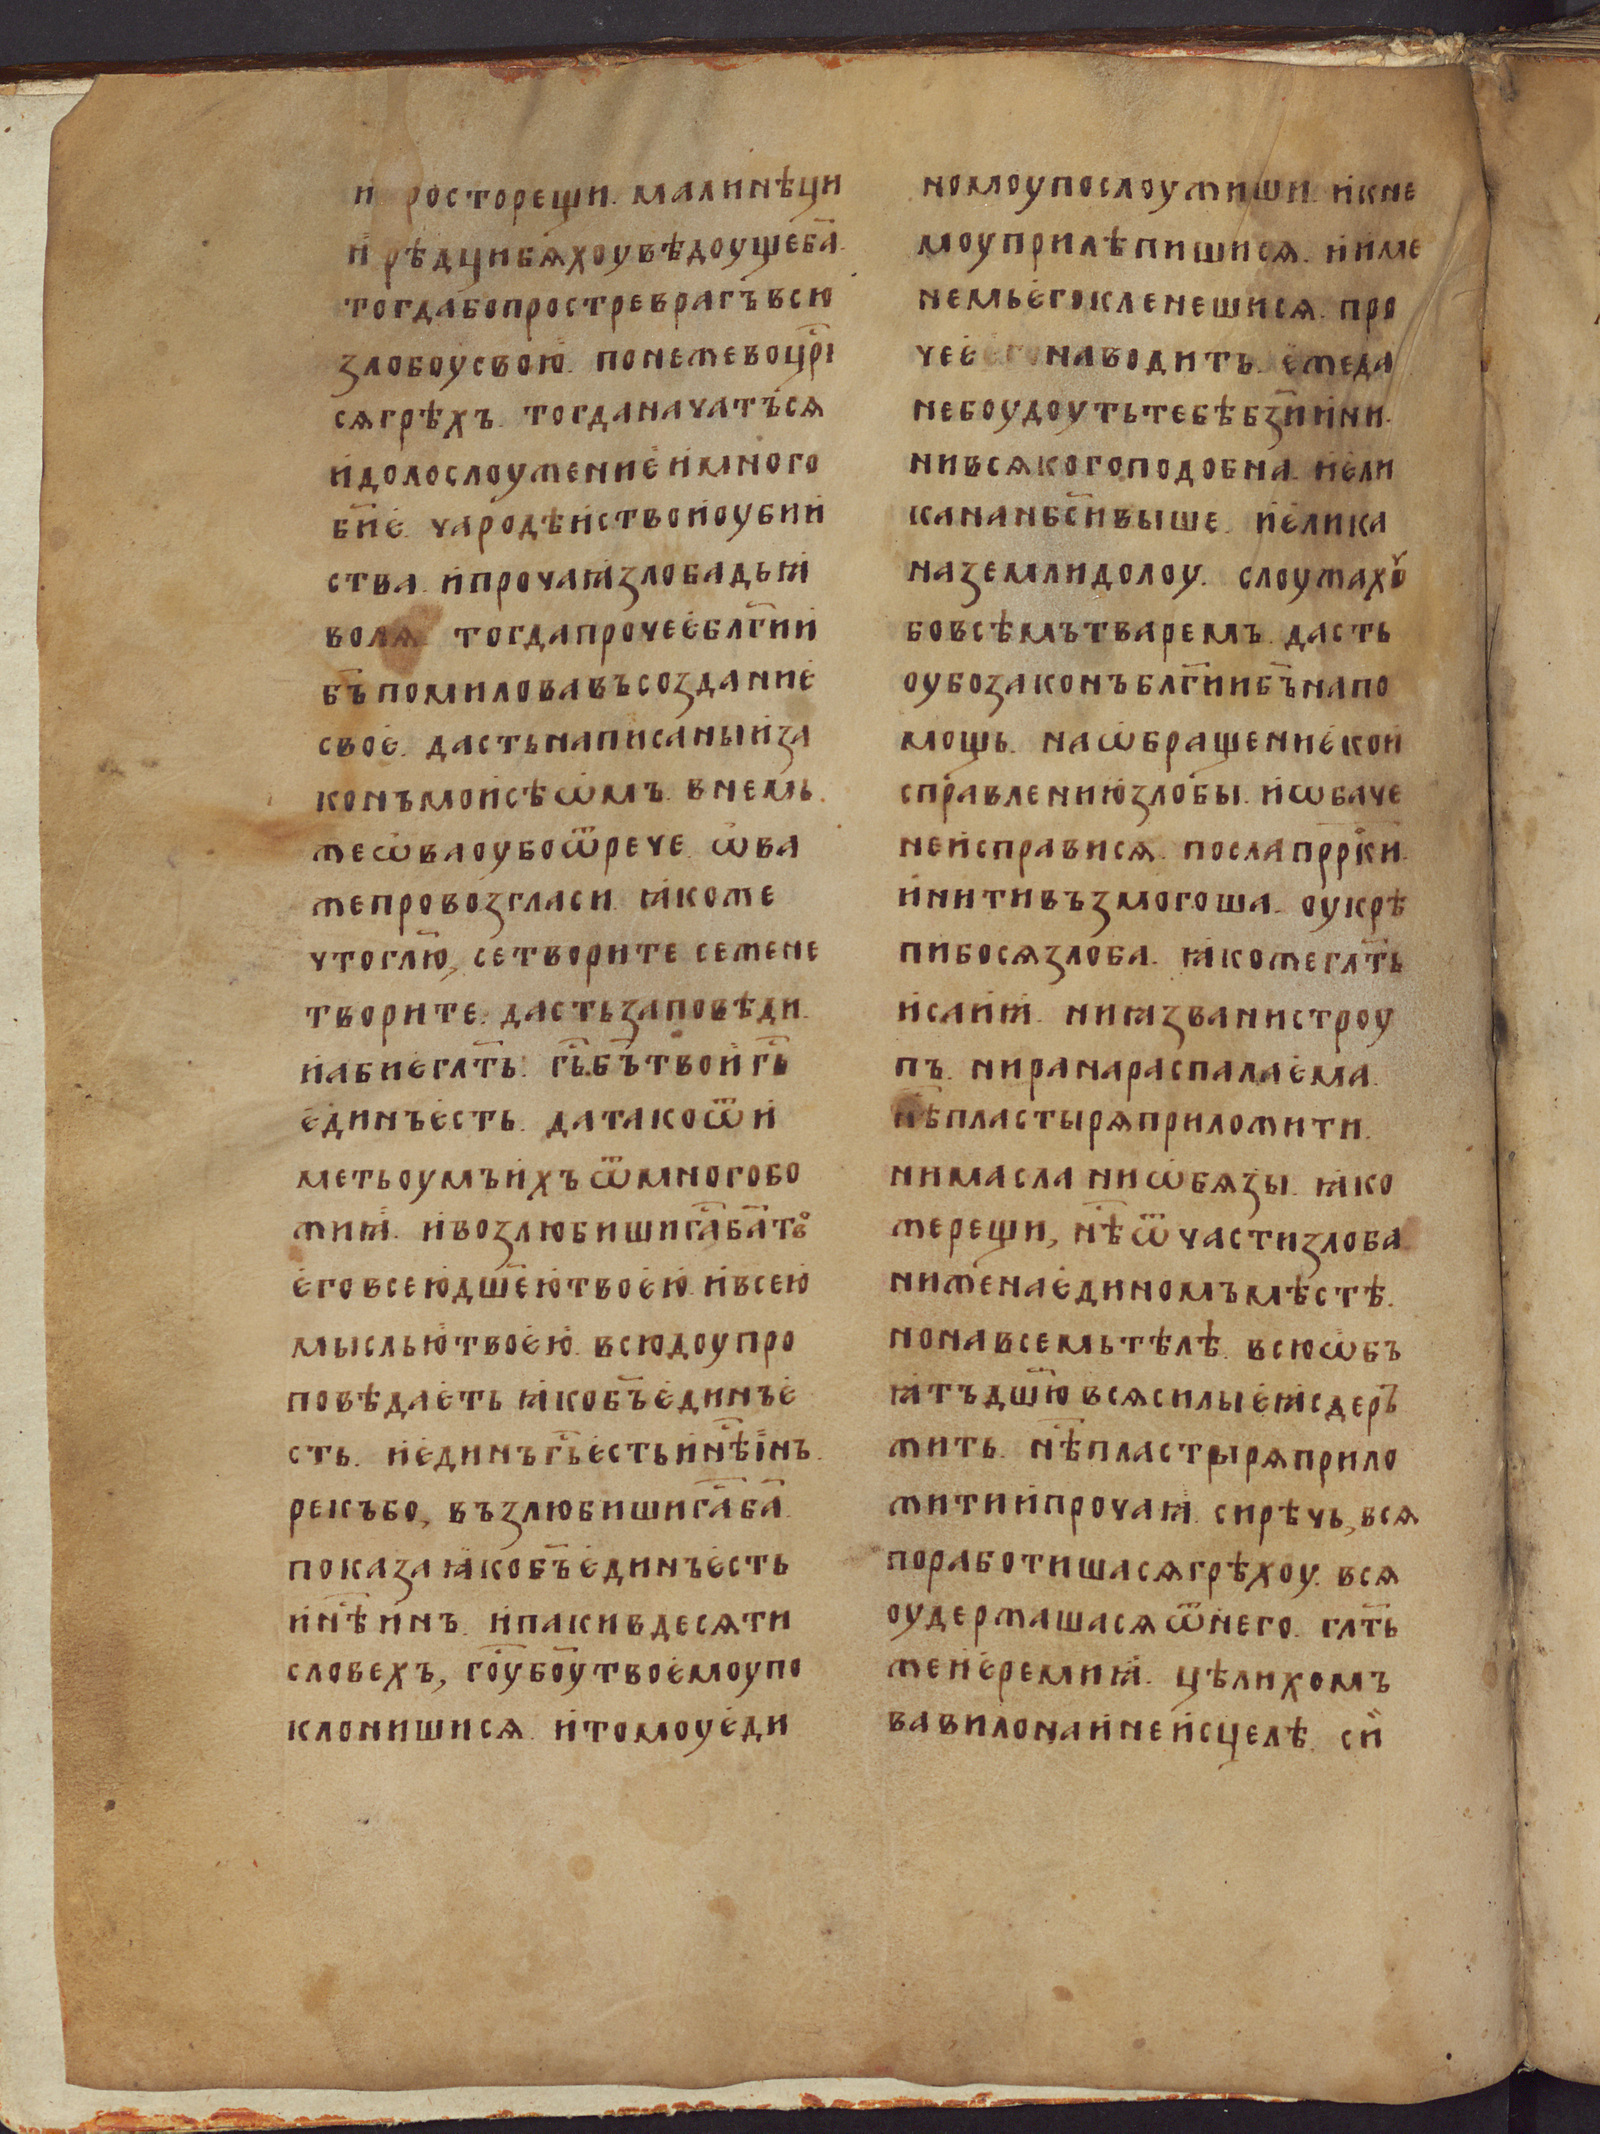 и ростореши. малинѣци
и рѣдцибѧхоувѣдоущеба҃.
тогдабопростреврагъвсю
злобоусвою. понежевоцр҃і
сѧгрѣхъ. тогданачатъсѧ
идолослоужениеимного
бг҃ие. чародѣиствоиоубии
ства. ипрочаꙗзлобадьꙗ
волѧ. тогдапрочееблг҃ии
бъ҃помиловавъсоздание
свое. дастьнаписаныиза
конъмоисѣѡмъ. внемь.
жеѡваоубоѿрече. ѡва
жепровозгласи. ꙗкоже
чтоглю҃, сетворите семене
творите. дастьзаповѣди.
иабиеглт҃ь. гь҃бъ҃твоигь҃
единъесть. датакоѿи
метьоумъихъѿмногобо
жиꙗ. ивозлюбишига҃ба҃твⷪ
еговсеюдш҃еютвоею. ивсею
мысльютвоею. всюдоупро
повѣдаеть ꙗкобъ҃единъе
сть. иединъгь҃естьинѣ҃інъ.
рекъбо, възлюбишига҃ба҃.
показаꙗкобъ҃единъесть
инѣ҃инъ. ипакивдесѧти
словехъ, го҃убо҃утвоемоупо
клонишисѧ. итомоуеди
номоупослоужиши. икне
моуприлѣпишисѧ. ииме
немьегокленешисѧ. про
чееегонаводить. емеда
небоудоутьтебѣбз҃иини.
нивсѧкогоподобна. иели
кананбс҃ивыше. иелика
наземлидолоу. слоужахꙋ
бовсѣмътваремъ. дасть
оубозаконъблг҃иибъ҃напо
мощь. наѡбращениекои
справлениюзлобы. иѡбаче
неисправисѧ. послапрр҃ки.
инитивъзмогоша. оукрѣ
пибосѧзлоба. ꙗкожеглт҃ь
исаиꙗ. ниꙗзванистроу
пъ. ниранараспалаема.
нѣ҃пластырѧприложити.
нимасла ниѡбѧзы. ꙗко
жерещи, нѣ҃ѿчастизлоба
ниженаединомъмѣстѣ.
нонавсемьтѣлѣ. всюѡбъ
ꙗтъдш҃ювсѧсилыеꙗсдеръ
жить. нѣ҃пластрырѧприло
житиипрочаꙗ. сирѣчь, всѧ
поработишасѧгрѣхоу. всѧ
оудержашасѧѿнего. глт҃ь
жеиеремиꙗ. цѣлихомъ
вавилонаинеисцелѣ. си